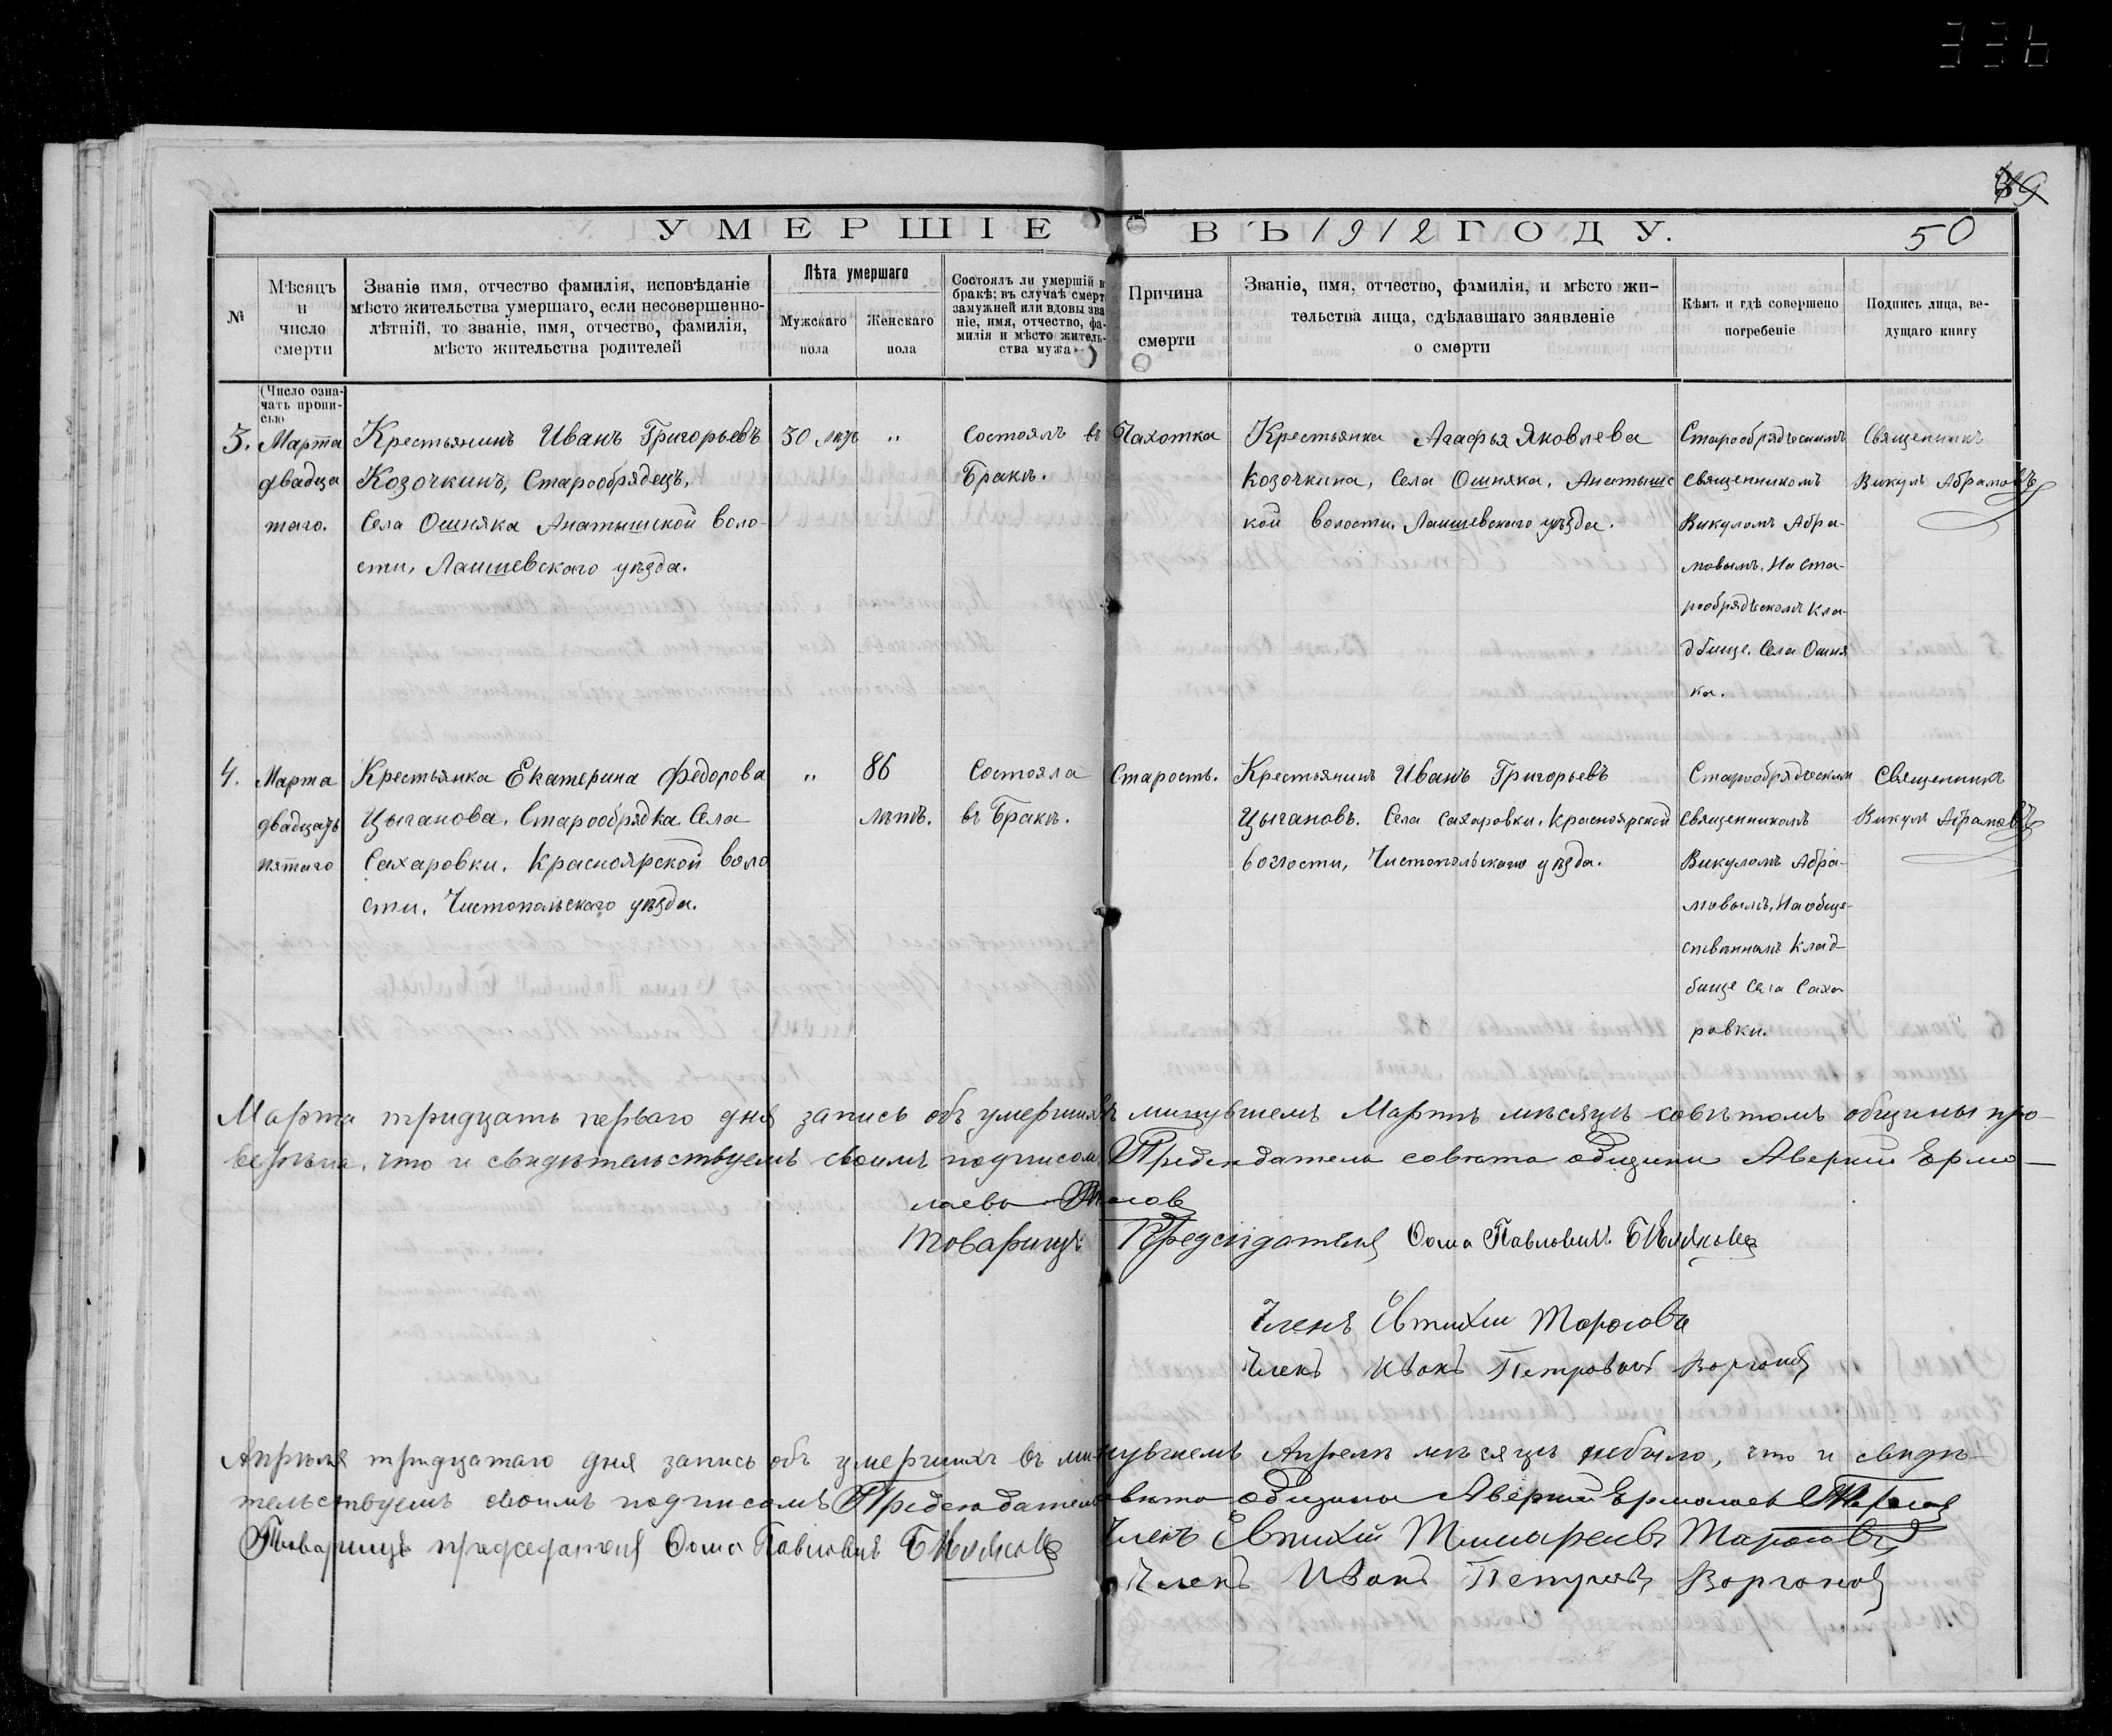 336
39
УМЕРШІЕ ВЪ 1912 ГОДУ.
50
№
Мѣсяцъ
и
число
смерти
Званіе имя, отчество фамилія, исповѣданіе
мѣсто жительства умершаго, если несовершенно-
лѣтній, то званіе, имя, отчество, фамилія,
мѣсто жительства родителей
Лѣта умершаго
Мужскаго
пола
Женскаго
пола
Состоялъ ли умершій в
бракѣ; въ случаѣ смерт
замужней или вдовы зва
ніе, имя, отчество, фа-
милія и мѣсто житель-
ства мужа
Причина
смерти
Званіе, имя, отчество, фамилія, и мѣсто жи-
тельства лица, сдѣлавшаго заявленіе
о смерти
Кѣмъ и гдѣ совершено
погребеніе
Подпись лица, ве-
дущаго книгу
(Число озна-
чать пропи-
сью
3.
Марта
двадца
таго.
Крестьянинъ Иванъ Григорьевъ
Козочкинъ, Старообрядецъ,
Села Ошняка Анатышской воло-
сти, Лаишевскаго уѣзда.
30 лѣтъ
"
Состоялъ въ
Бракѣ.
Чахотка
Крестьянка Агафья Яковлева
Козочкина, Села Ошняка, Анатышс
кой волости, Лаишевскаго уѣзда.
Старообрядческимъ
священникомъ
Викуломъ Абра-
мовымъ. На ста-
рообрядческомъ кла-
дбище. Села Ошня
ка.
Священникъ
Викулъ Абрамовъ
4.
Марта
двадцать
пятаго
Крестьянка Екатерина Федорова
Цыганова, Старообрядка Села
Сахаровки, Красноярской воло
сти, Чистопольскаго уѣзда.
"
86
лѣтъ.
Состояла
въ Бракѣ.
Старость.
Крестьянинъ Иванъ Григорьевъ
Цыгановъ. Села Сахаровки, Красноярской
волости, Чистопольскаго уѣзда.
Старообрядческим
священникомъ
Викуломъ Абра-
мовымъ, На обще-
ственномъ клад-
бище Села Саха
ровки.
Священникъ
Викулъ Абрамовъ
Марта тридцать перваго дня запись объ умершихъ минувшемъ Мартѣ мѣсяцѣ совѣтомъ общины про-
верена, что и свидѣтельствуемъ своимъ подписом Председатель совета общины Аверкий Ермо-
лаевъ
Товарищъ Председателя Фома Павловичъ Бѣляковъ
Членъ Евтихии Тарасовъ
Членъ Иванъ Петровичъ Воргановъ
Апрѣля тридцатаго дня запись объ умершихъ въ минувшемъ Апрелѣ мѣсяцѣ небыло, что и свидѣ-
тельствуемъ своимъ подписомъ Председатель совета общины Аверкий Ермолаев Тарасов
Товарищъ председателя Фома Павловичъ Бѣляковъ Членъ Евтихий Тарасовъ
Членъ Иванъ Петровъ Воргановъ